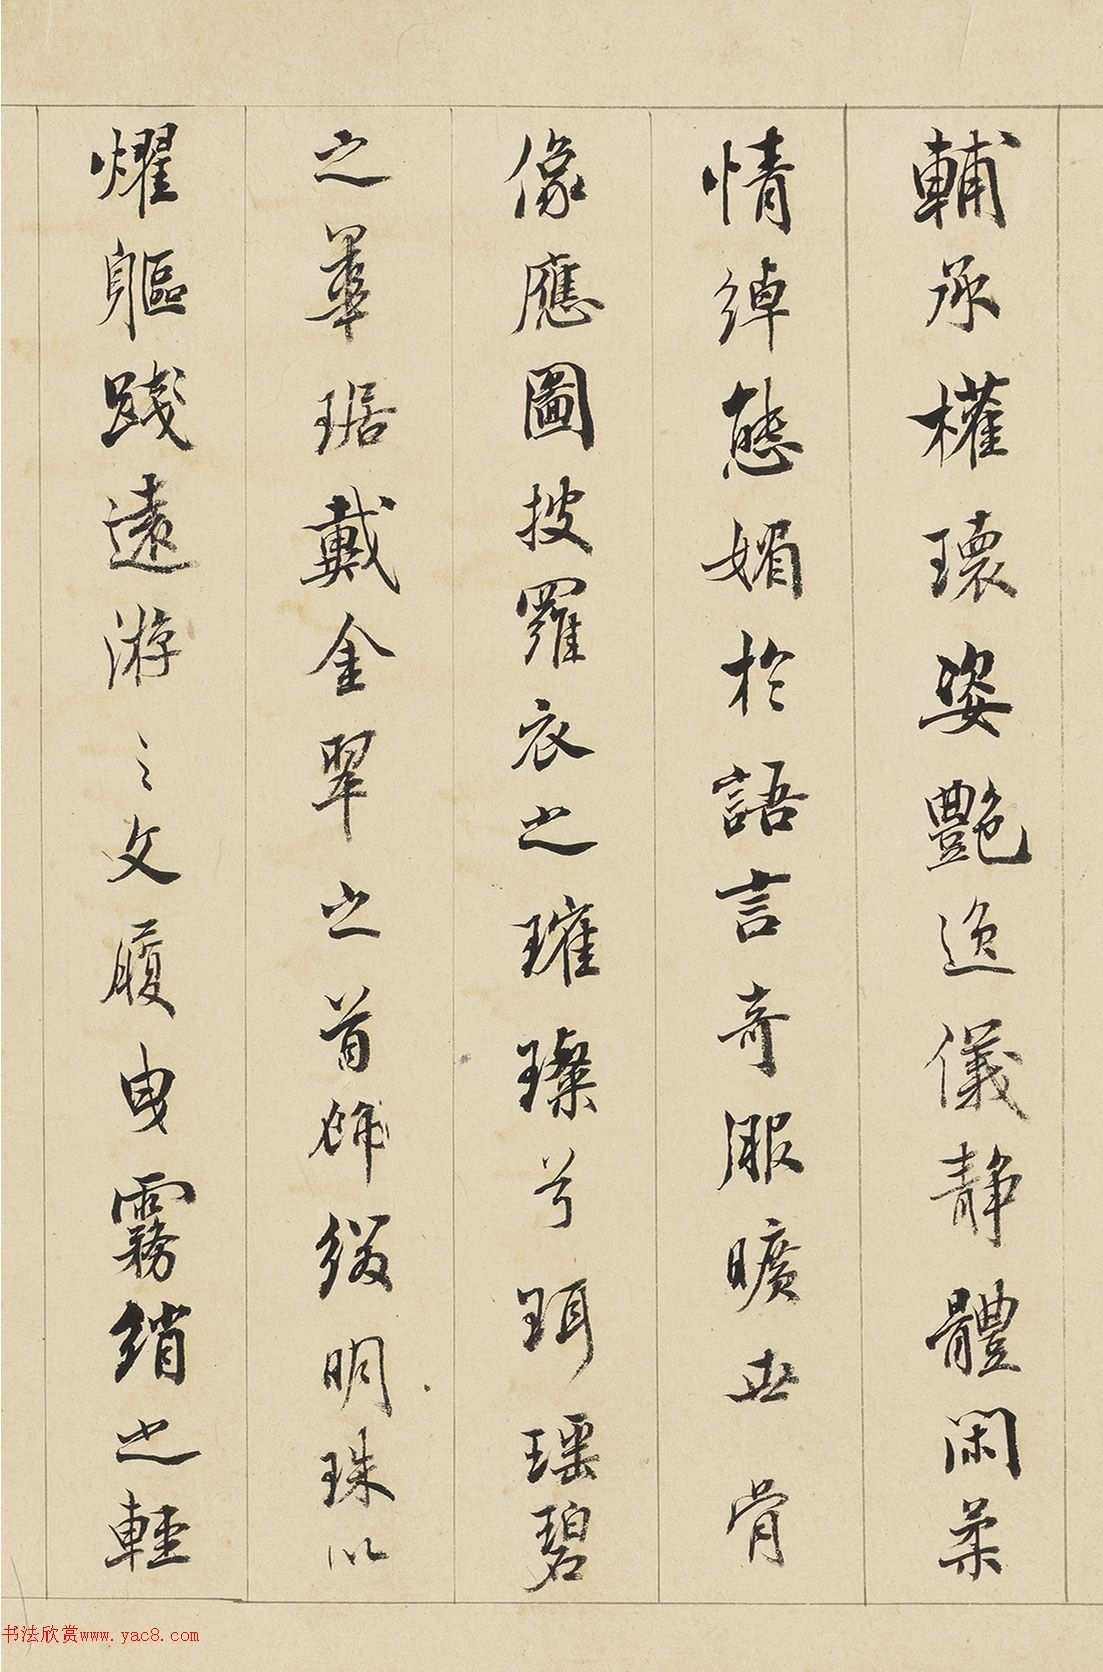 輔承權瓌姿艷逸儀静體閑柔
情綽態媚於語言奇服曠世骨
像應圖披羅衣之璀璨兮珥瑶碧
之華琚戴金翠之首飾綴明珠以
燿軀踐遠游之文履曳霧綃之輕
书法欣赏www.yac8.com